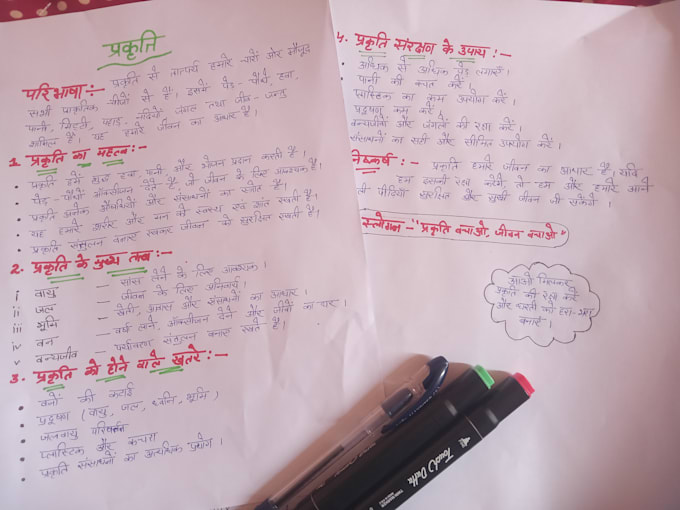 प्रकृति
परिभाषा :- प्रकृति से तात्पर्य हमारे चारों ओर मौजूद
सभी प्राकृतिक चीजों से है। इसमें पेड़-पौधे, हवा,
पानी, मिट्टी, पहाड़, नदियाँ, जंगल तथा जीव-जन्तु
शामिल हैं। यह हमारे जीवन का आधार है।
1. प्रकृति का महत्व:-
• प्रकृति हमें शुद्ध हवा, पानी, और भोजन प्रदान करती है।
• पेड़-पौधे ऑक्सीजन देते हैं, जो जीवन के लिए आवश्यक है।
• प्रकृति अनेक औषधियों और संसाधनों का स्रोत है।
• यह हमारे शरीर और मन को स्वस्थ एवं शांत रखती है।
• प्रकृति संतुलन बनाए रखकर जीवन को सुरक्षित रखती है।
2. प्रकृति के मुख्य तत्व:-
i वायु — सांस लेने के लिए आवश्यक।
ii जल — जीवन के लिए अनिवार्य।
iii भूमि — खेती, आवास और संसाधनों का आधार।
iv वन — वर्षा लाने, ऑक्सीजन देने और जीवों का घर।
v वन्यजीव — पर्यावरण संतुलन बनाए रखते हैं।
3. प्रकृति को होने वाले खतरे:-
• वनों की कटाई
• प्रदूषण (वायु, जल, ध्वनि, भूमि)
• जलवायु परिवर्तन
• प्लास्टिक और कचरा
• प्रकृति संसाधनों का अत्यधिक प्रयोग।
4. प्रकृति संरक्षण के उपाय:-
• अधिक से अधिक पेड़ लगाएँ।
• पानी की बचत करें
• प्लास्टिक का कम उपयोग करें।
• प्रदूषण कम करें
• वन्यजीवों और जंगलों की रक्षा करें।
संसाधनों का सही और सीमित उपयोग करें।
निष्कर्ष:- प्रकृति हमारे जीवन का आधार है। यदि
हम इसकी रक्षा करेंगे, तो हम और हमारे आने
पीढ़ियाँ सुरक्षित और सुखी जीवन जी सकेंगी।
स्लोगन - "प्रकृति बचाओ, जीवन बचाओ"
आओ मिलकर
प्रकृति की रक्षा करें
और धरती को हरा-भरा
बनाएँ।
Touch Dafta